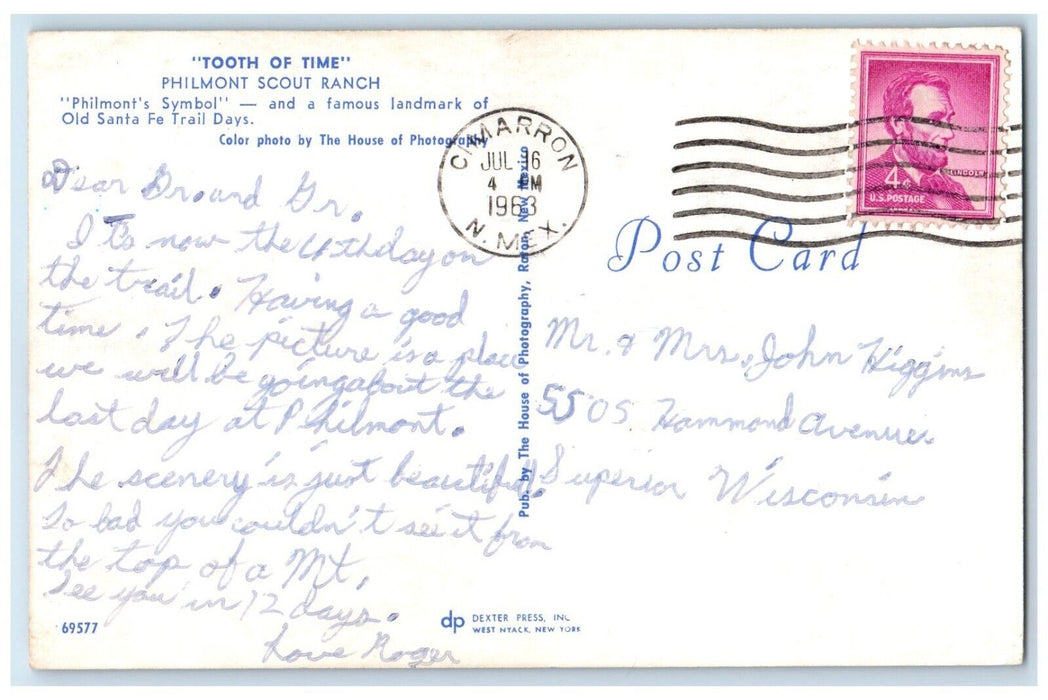 "TOOTH OF TIME"
PHILMONT SCOUT RANCH
"Philmont's Symbol" — and a famous landmark of
Old Santa Fe Trail Days.
Color photo by The House of Photography
CIMARRON
JUL 16
4 PM
1963
N. MEX.
4¢
LINCOLN
U.S. POSTAGE
Post Card
Dear Gr. and Gr.
It's now the 4th day on
the trail. Having a good
time. The picture is a place
we will be going about the
last day at Philmont.
The scenery is just beautiful.
So bad you couldn't see it from
the top of a Mt.
See you in 12 days.
Love Roger
Pub. by The House of Photography, Raton, New Mexico
Mr. & Mrs. John Higgins
5505 Hammond Avenue
Superior Wisconsin
69577
dp DEXTER PRESS, INC.
WEST NYACK, NEW YORK